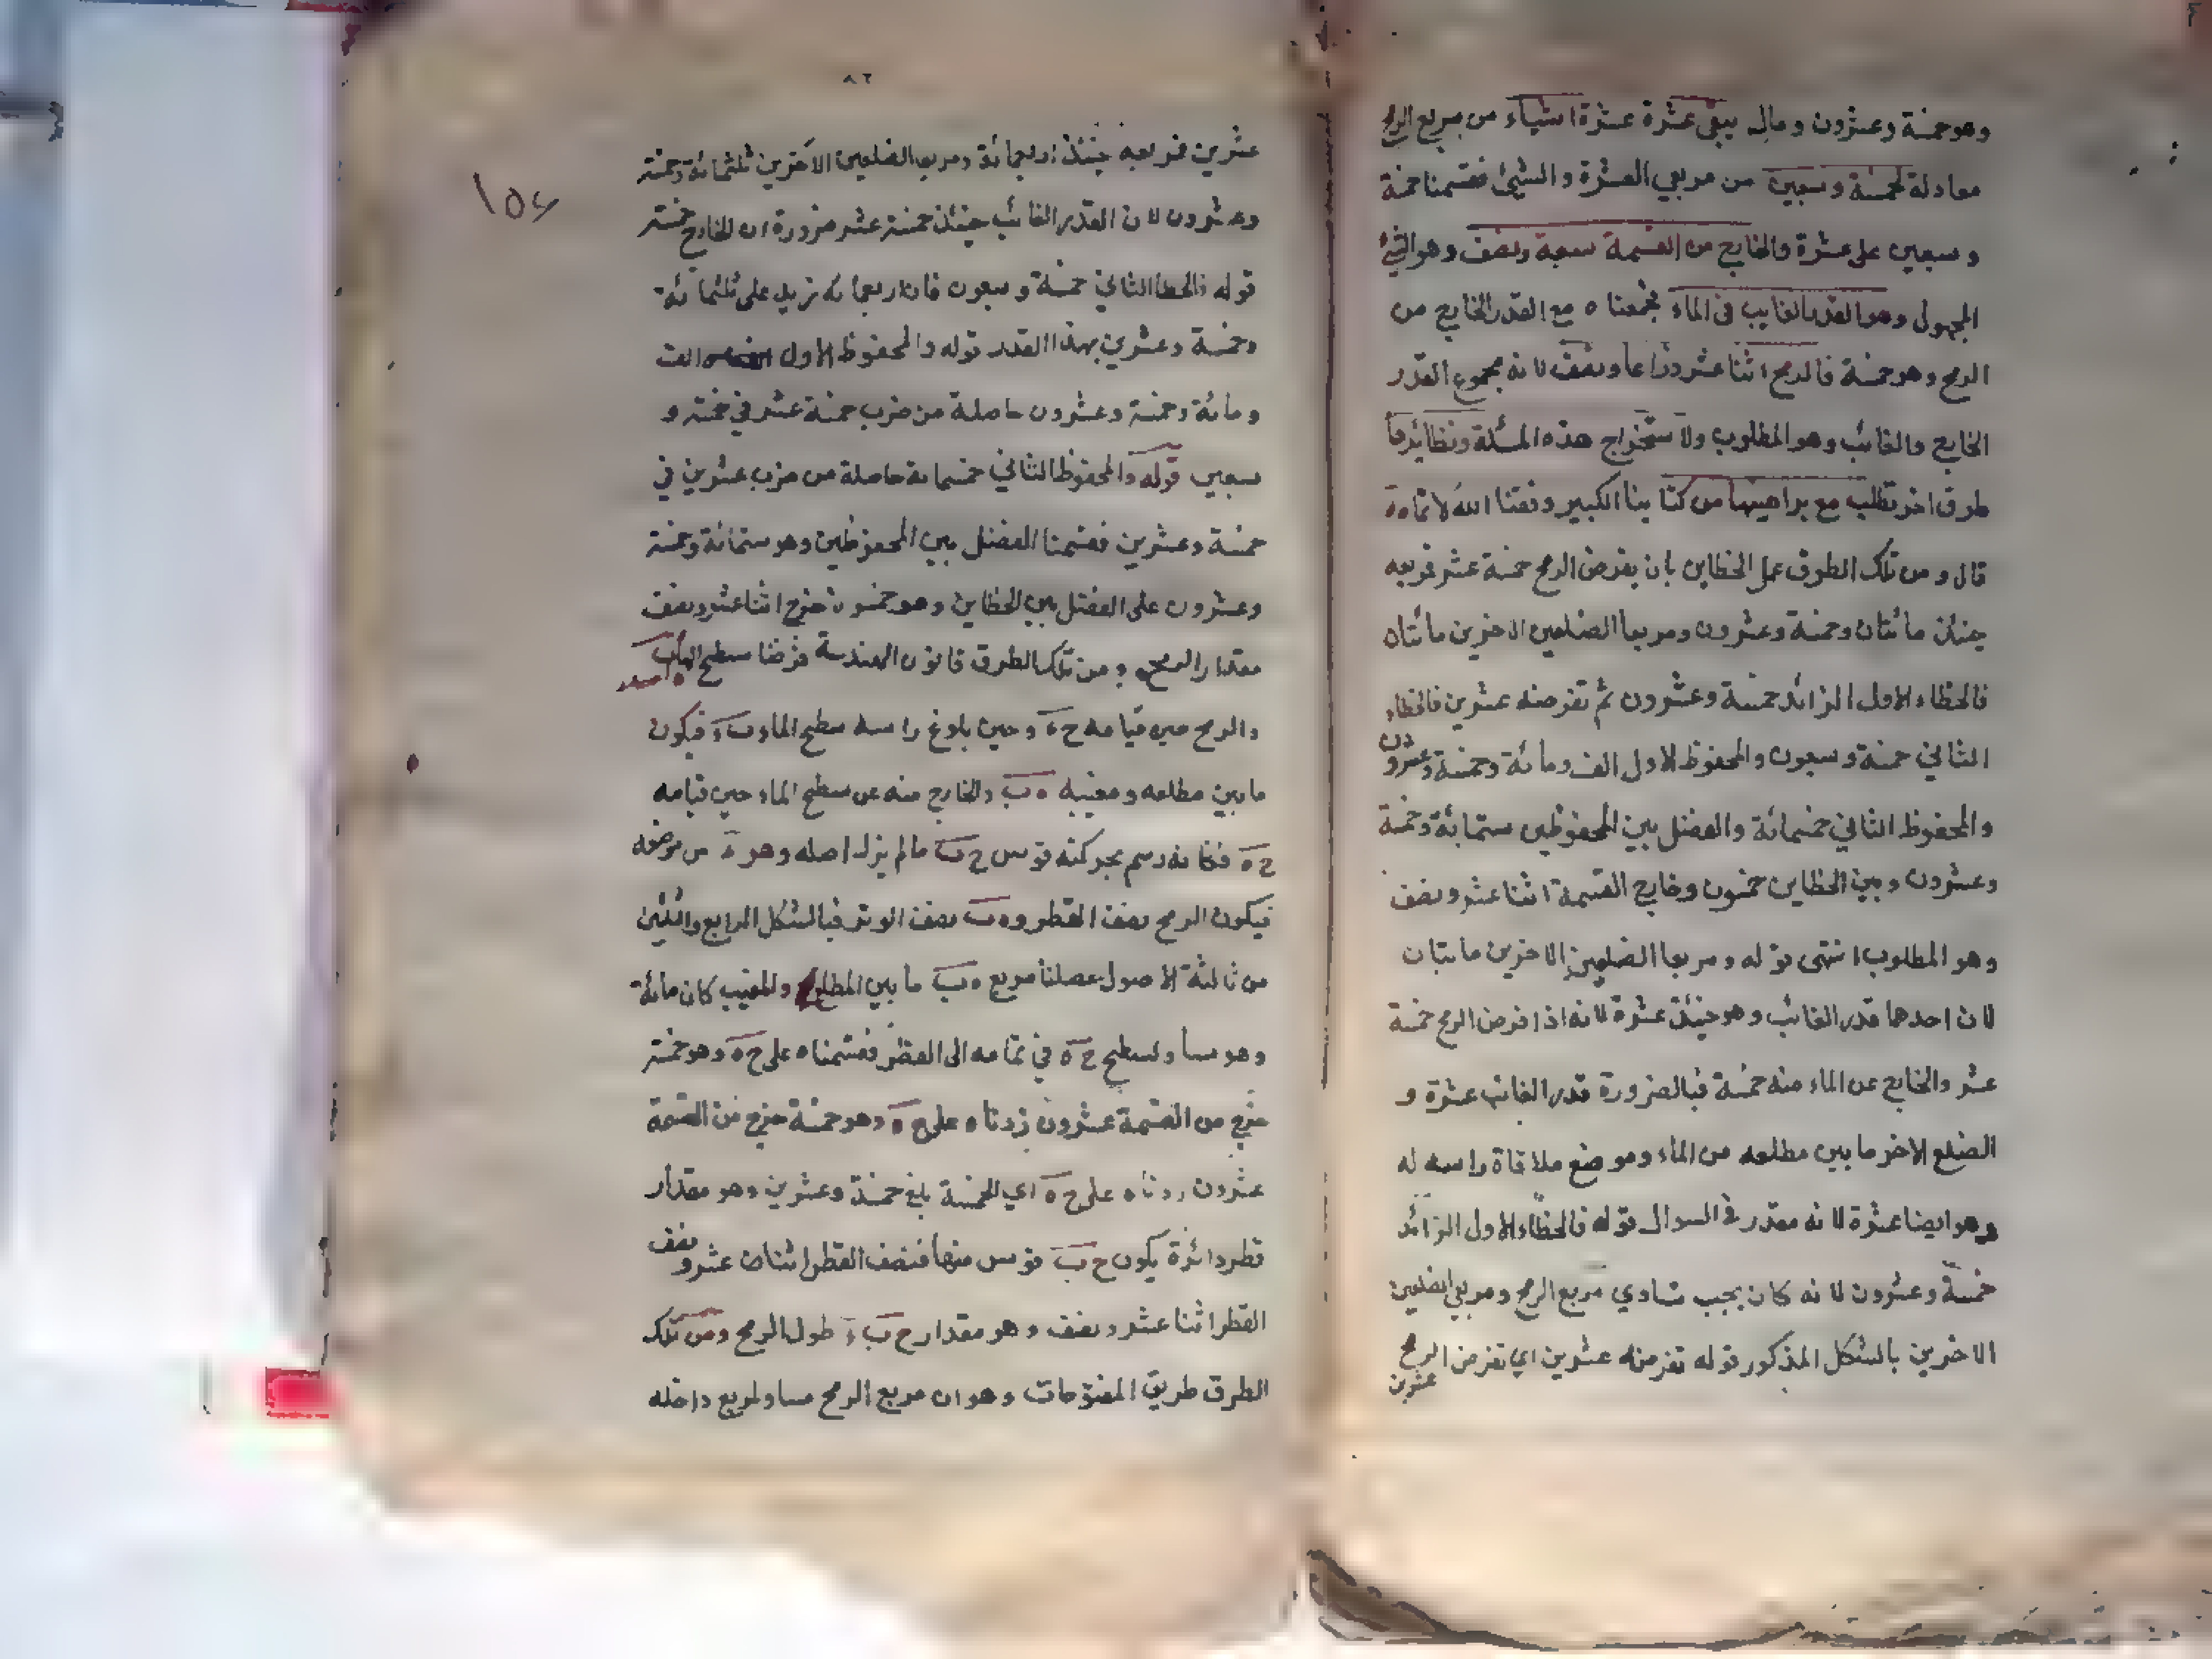 وهو خمسة وعشرون ومال يبقى عشرة عشرة اشياء من مربع الرمح
معادلة لخمسة وسبعين من مربعي العشرة والشيئ فقسمنا خمسة
وسبعين على عشرة والخارج من القسمة سبعة ونصف وهو الشيئ
المجهول وهو القدر الغايب فى الماء فجمعناه مع القدر الخارج من
الرمح وهو خمسة فالرمح اثنا عشر ذراعا ونصف لانه مجموع القدر
الخارج والغائب وهو المطلوب ولاستخراج هذه المسئلة ونظائرها
طرق اخر تطلب مع براهينها من كتابنا الكبير وفقنا الله لاتمامه
قال ومن تلك الطرق عمل الخطاين بان يفرض الرمح خمسة عشر فربعه
حينئذ مائتان وخمسة وعشرون ومربعا الضلعين الاخرين مائتان
فالخطاء الاول الزائد خمسة وعشرون ثم تفرضه عشرين فالخطاء
الثاني خمسة وسبعون والمحفوظ الاول الف ومائة وخمسة وعشرون
والمحفوظ الثاني خمسمائة والفضل بين المحفوظين ستمائة وخمسة
وعشرون وبين الخطاين خمسون وخارج القسمة اثنا عشر ونصف
وهو المطلوب انتهى قوله ومربعا الضلعين الاخرين مائتان
لان احدهما قدر الغائب وهو حينئذ عشرة لانه اذا فرض الرمح خمسة
عشر والخارج عن الماء منه خمسة فبالضرورة قدر الغائب عشرة و
الضلع الاخر ما بين مطلعه من الماء وموضع ملاقاة راسه له
وهو ايضا عشرة لانه مقدر في السوال قوله فالخطاء الاول الزائد
خمسة وعشرون لانه كان يجب تساوي مربع الرمح ومربعي الضلعين
الاخرين بالشكل المذكور قوله تفرضه عشرين اي تفرض الرمح
عشرين
٨٢
١٥٤
عشرين فمربعه حينئذ اربعمائة ومربعا الضلعين الاخرين ثلثمائة وخمسة
وعشرون لان القدر الغائب حينئذ خمسة عشر ضرورة ان الخارج خمسة
قوله فالخطا الثاني خمسة وسبعون فان اربعمائه تزيد على ثلثمائة
وخمسة وعشرين بهذا القدر قوله والمحفوظ الاول الف
ومائة وخمسة وعشرون حاصلة من ضرب خمسة عشر في خمسة و
سبعين قوله والمحفوظ الثاني خمسمائة حاصلة من ضرب عشرين في
خمسة وعشرين فقسمنا الفضل بين المحفوظين وهو ستمائة وخمسة
وعشرون على الفضل بين الخطاين وهو خمسون خرج اثنا عشر ونصف
مقدار الرمح ومن تلك الطرق قانون الهندسة فرضنا سطح الماء
والرمح حين قيامه ح ء وحين بلوغ راسه سطح الماء ب ء فيكون
ما بين مطلعه ومغيبه ه ب والخارج منه عن سطح الماء حين قيامه
ح ه فكانه رسم بحركته قوس ح ب مالم يزل اصله وهو ء من موضعه
فيكون الرمح نصف القطر و ه ب نصف الوتر فبالشكل الرابع والثلثين
من ثالثة الاصول حصلنا مربع ه ب ما بين المطلع والمغيب كان مائة
وهو مساو لسطح ح ه في تمامه الى القطر فقسمناه على ح ه وهو خمسة
خرج من القسمة عشرون زدناه على ح ه وهو خمسة خرج من القسمة
عشرون زدناه على ح ه اي الخمسة بلغ خمسة وعشرين وهو مقدار
قطر دائرة يكون ح ب قوس منها فنصف القطر اثنان عشر ونصف
القطر اثنا عشر ونصف وهو مقدار ح ب ء طول الرمح ومن تلك
الطرق طريق المفتوحات وهو ان مربع الرمح مساو لمربع داخله